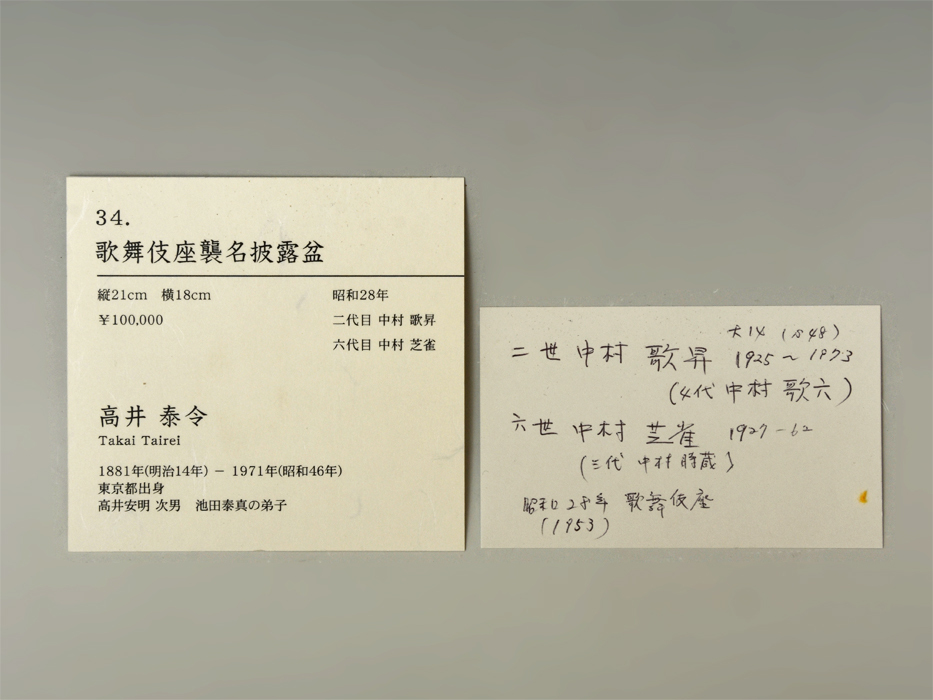 34.
歌舞伎座襲名披露盆
縦21cm 横18cm
昭和28年
￥100,000
二代目 中村 歌昇
六代目 中村 芝雀
高井 泰令
Takai Tairei
1881年(明治14年) － 1971年(昭和46年)
東京都出身
高井安明 次男 池田泰真の弟子
大14 (S48)
二世 中村 歌昇 1925～1973
(4代 中村 歌六)
六世 中村 芝雀 1927-62
(三代 中村 時蔵)
昭和28年 歌舞伎座
(1953)